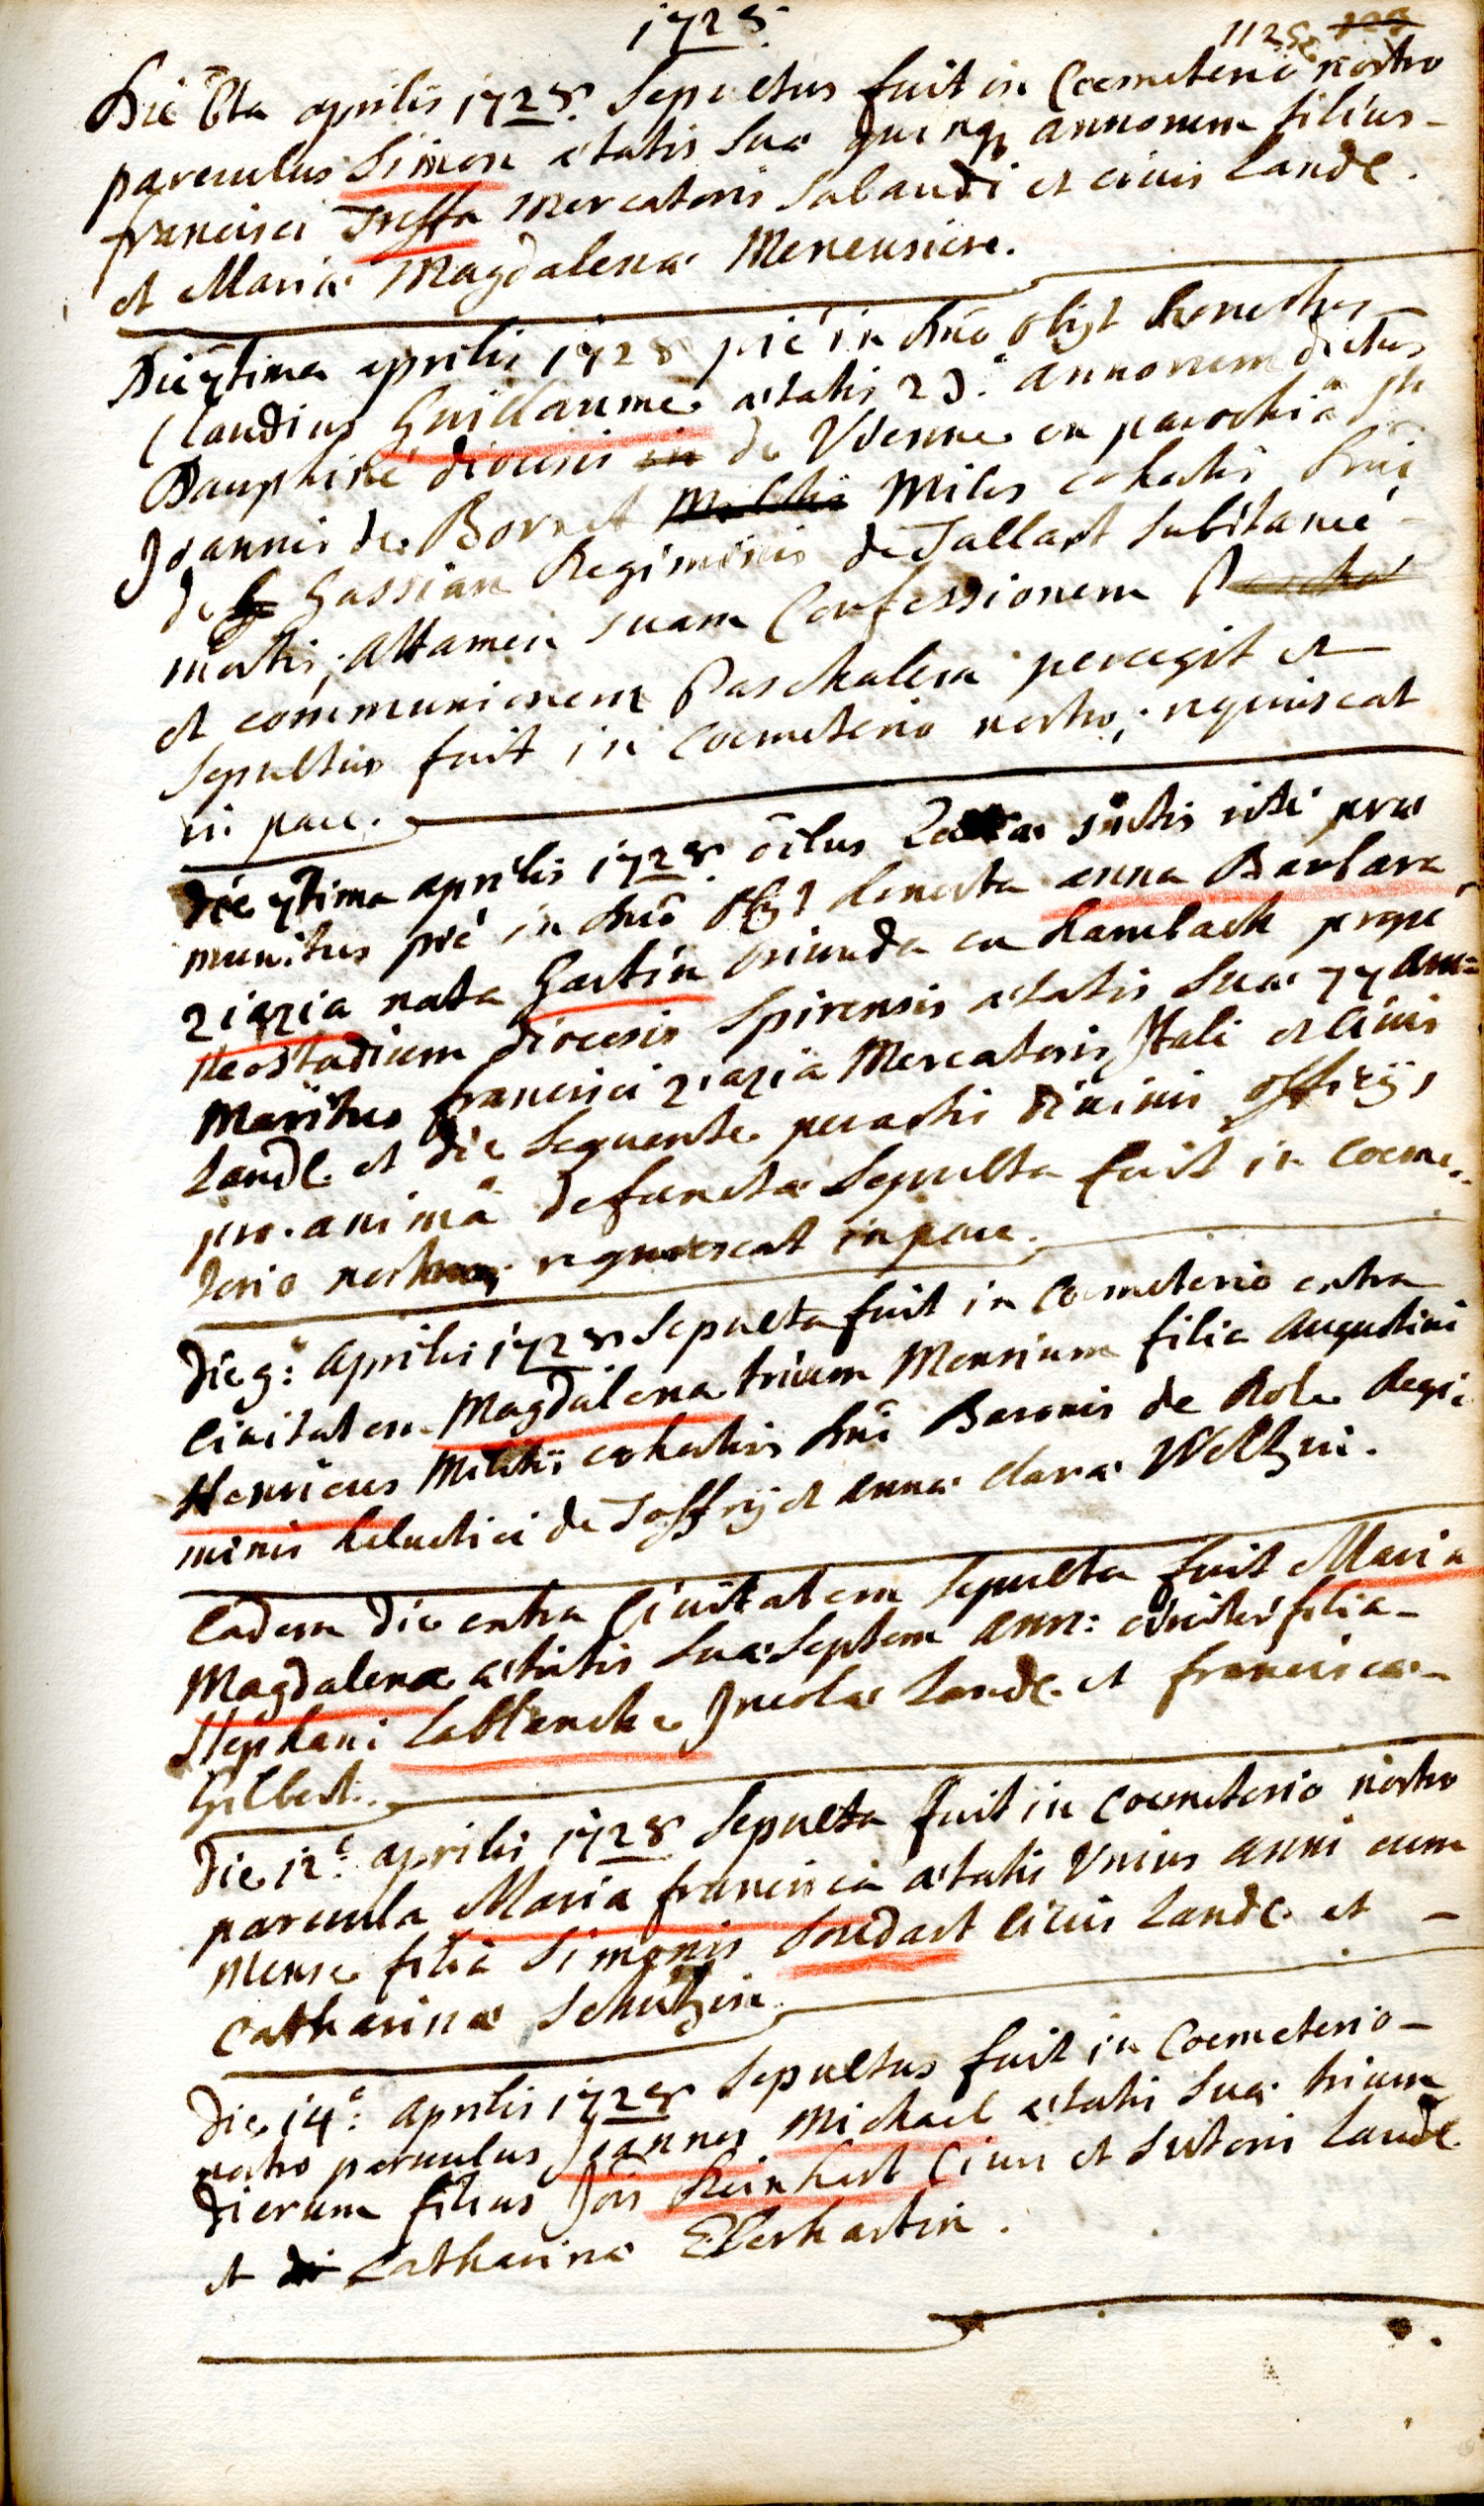 1728.
Die 6ta aprilis 1728. Sepultus fuit in Coemeterio nostro
parvulus Simon ætatis suæ quinq annorum filius
francisci Treffa Mercatoris Sabaudi et civis Land.
et Mariæ Magdalenæ Meneusiere.
Die 7tima aprilis 1728 piè in dno obyt honestus
Claudius Guillaume ætatis 23. annorum dictus
Dauphiné diocesis de Vienne ex parochiâ Sti
Joannis de Bornet Miles cohortis Dni
de Gassian Regiminis de Tallart subitaneè
mortis, attamen suam Confessionem
et communionem Paschalem peregit et
Sepultus fuit in Coemeterio nostro; requiescat
in pace.
Die 7tima aprilis 1728. oibus Sactis ritè præ
munitus piè in dno obyt honesta anna Barbara
Ziazia nata Gartin oriunda ex hambach propè
Neostadium diocesis Spirensis ætatis suæ 77 ann=
Maritus francisci Ziazia Mercatoris Itali et civis
Land. et die sequente peractis divinis officijs
pro animâ defunctæ Sepulta fuit in Coeme-
terio nostro; requiescat in pace.
Die 9: aprilis 1728 Sepulta fuit in Coemeterio extra
Civitatem Magdalena trium Mensium filia Augustini
Henricus Militis cohortis Dni Baronis de Role Regi-
minis helvetici de Joffrij et annæ claræ Weltzin.
Eadem die extra Civitatem Sepulta fuit Maria
Magdalena ætatis suæ Septem ann: circiter filia
Stephani Lablanche Incolæ Land. et franciscæ
Gilbert.
Die 12: aprilis 1728 Sepulta fuit in Coemeterio nostro
parvula Maria francisca ætatis Unius anni cum
Mense filia Simonis Soudart Civis Land. et
Catharinæ Schützin.
Die 14: aprilis 1728 Sepultus fuit in Coemeterio
nostro parvulus Joannes Michael ætatis suæ trium
dierum filius Jois Reinhart Civis et Sutoris Land.
et Catharinæ Eberhartin.